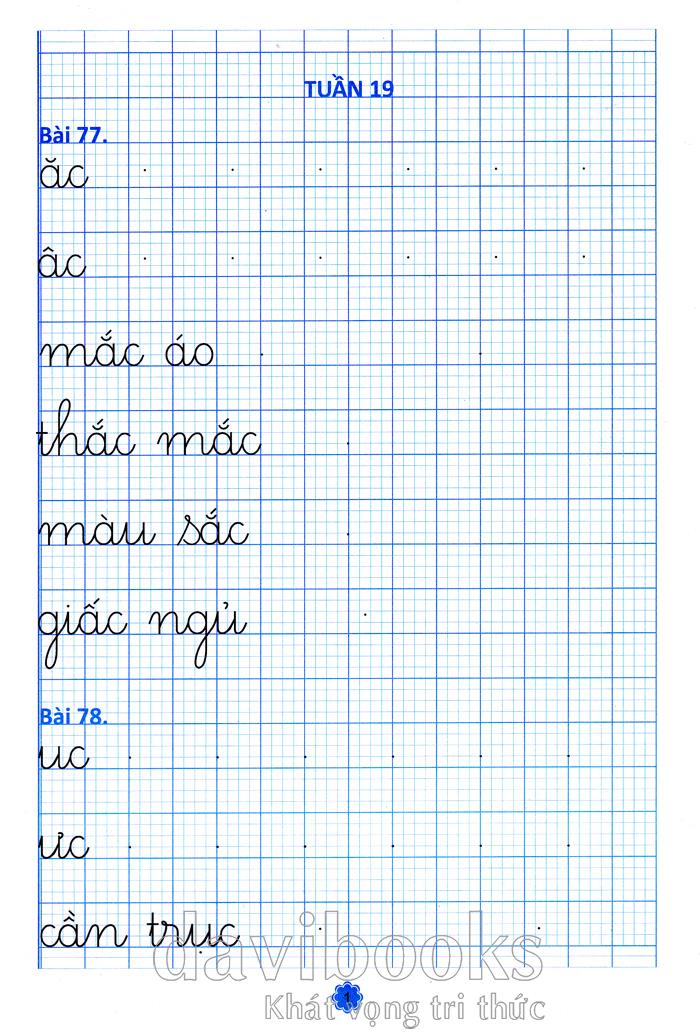 TUẦN 19
Bài 77.
ăc
âc
mắc áo
thắc mắc
màu sắc
giấc ngủ
Bài 78.
uc
ưc
cần trục
davibooks
1
Khát vọng tri thức